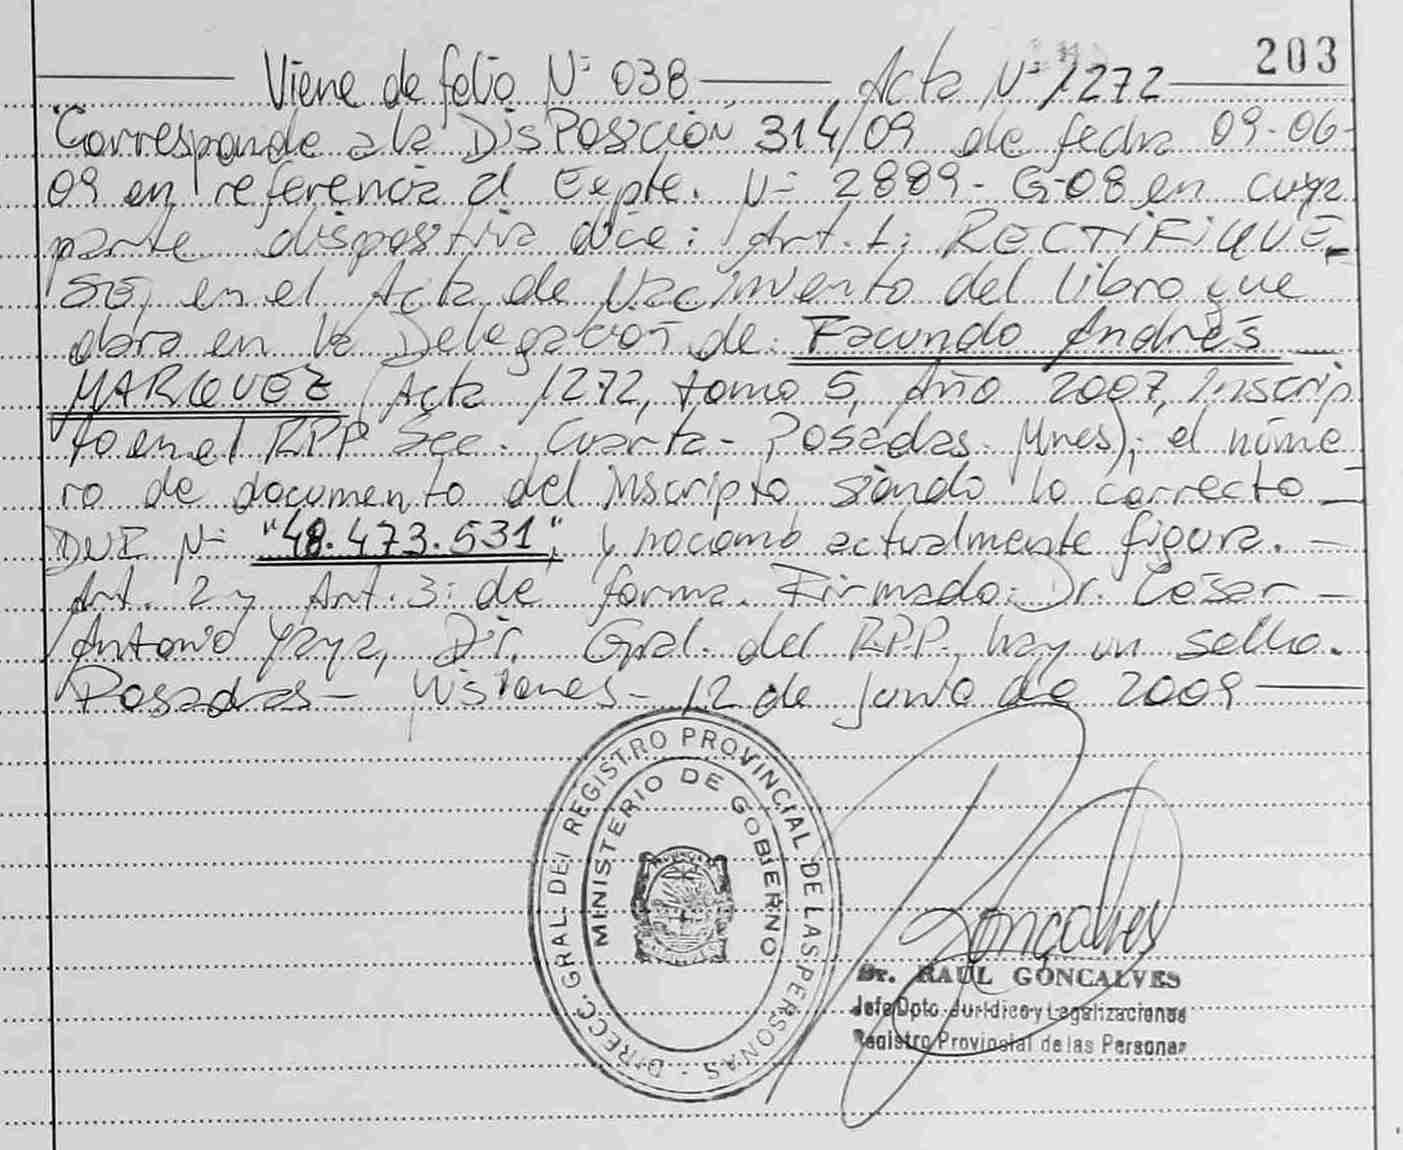 203
Viene de folio Nº 038 Acta Nº 1272
Corresponde a la Disposición 314/09 de fecha 09-06-
09 en referencia al Expte. Nº 2889-G-08 en cuya
parte dispositiva dice: Art. 1: RECTIFIQUE-
SE, en el Acta de Nacimiento del libro que
obra en la Delegación de: Facundo Andrés
MARQUEZ (Acta 1272, tomo 5, Año 2007, Inscrip
to en el RPP Sec. Cuarta - Posadas. Mnes); el núme
ro de documento del inscripto siendo lo correcto
DNI Nº "48.473.531", y no como actualmente figura.
Art. 2 y Art. 3: de forma. Firmado: Dr. César
Antonio Yaya, Dir. Gral. del RPP, hay un sello.
Posadas - Misiones - 12 de Junio de 2009
DIRECC. GRAL. DEL REGISTRO PROVINCIAL DE LAS PERSONAS
MINISTERIO DE GOBIERNO
Goncalves
Dr. RAUL GONCALVES
Jefe Dpto. Jurídico y Legalizaciones
Registro Provincial de las Personas